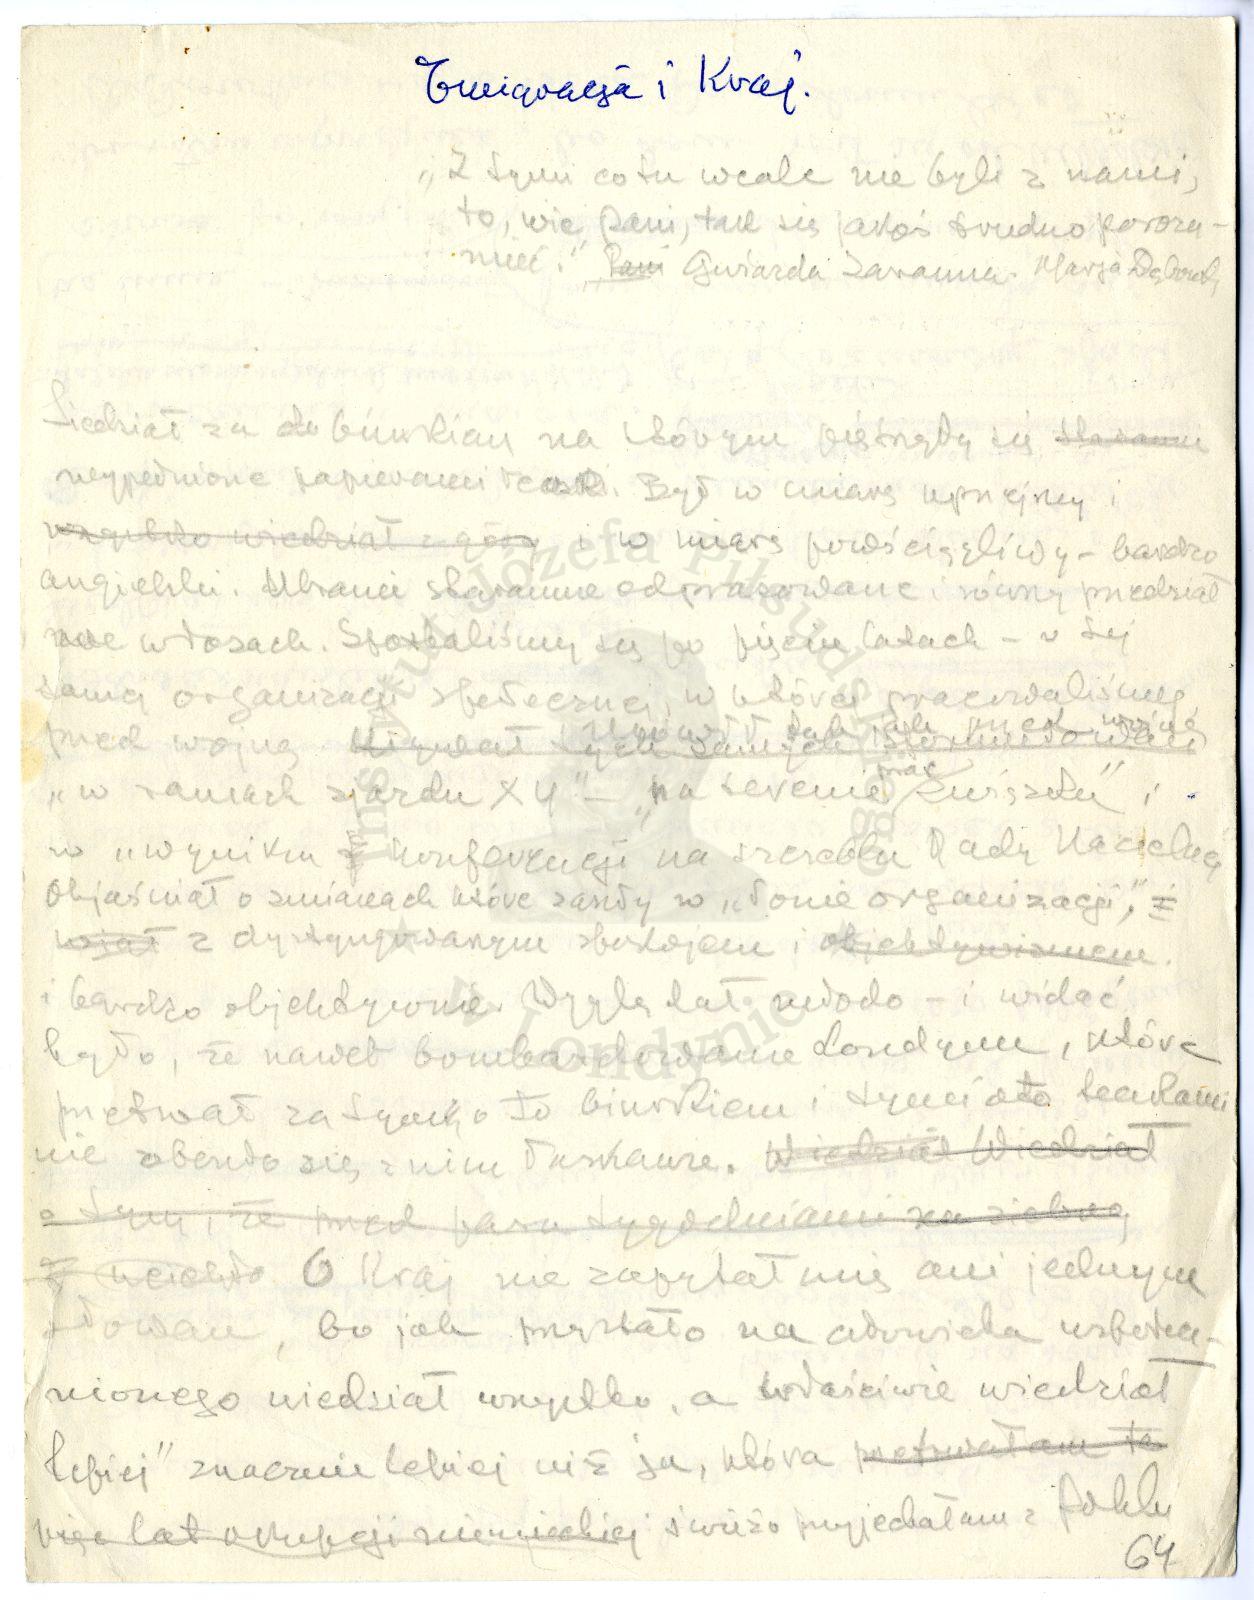 Emigracja i Kraj.
„Z tymi co tu wcale nie byli z nami,
to, wie Pani, tak się jakoś trudno porozu-
mieć." „Pani Gwiazda Zaranna. Marja Dąbrowska
Siedział za biurkiem na którym piętrzyły się staranne
wypełnione papierami teczki. Był w miarę uprzejmy i
wszystko wiedział z góry i w miarę powściągliwy – bardzo
angielski. Ubranie starannie odprasowane i równy przedział
we włosach. Spotkaliśmy się po pięciu latach – w tej
samej organizacji społecznej, w której pracowaliśmy
przed wojną. Używał tych samych sformułowań
Mówił tak jak przed wojną
„w ramach zjazdu XY" – „na terenie prac Związku" i
w „wyniku konferencji na szczeblu Rady Naczelnej
Objaśniał o zmianach które zaszły w „łonie organizacji", i
z dystyngowanym spokojem i objektywizmem.
i bardzo objektywnie. Wyglądał młodo – i widać
było, że nawet bombardowanie Londynu, które
przetrwał za tym oto biurkiem i tymi oto teczkami
nie obeszło się z nim łaskawie. Wiedział Wiedział
o tym, że przed paru tygodniami za zieloną
uciekło O Kraj nie zapytał mię ani jednym
słowem, bo jak przystało na człowieka uspołecz-
nionego wiedział wszystko, a właściwie wiedział
lepiej" znacznie lepiej niż ja, która przetrwałam te
pięć lat okupacji niemieckiej świeżo przyjechałam z Polski
64
Instytut Józefa Piłsudskiego
w Londynie